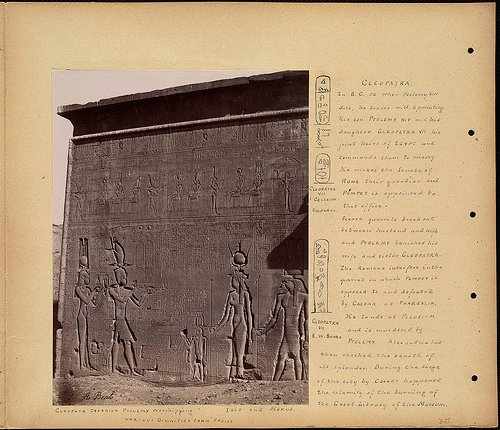 CLEOPATRA
In B.C. 52 when Ptolemy XIII
dies, he leaves a will appointing
his son PTOLEMY XIV and his
daughter CLEOPATRA VII his
joint heirs of EGYPT and
commands them to marry
He makes the Senate of
ROME their guardian and
POMPEY is appointed to
that office.
quarrels break out
between husband and wife
and PTOLEMY banished his
wife and sister CLEOPATRA.
The Romans interfere in the
quarrel in which POMPEY is
opposed to and defeated
by CAESAR at PHARSALIA.
He lands at PELUSIUM
and is murdered by
PTOLEMY. Alexandria had
then reached the zenith of
its splendor. During the siege
of the city by Caesar happened
the calamity of the burning of
the Great Library of the Museum.
CLEOPATRA
VII
CLEOPATRA
VII
E. W. BUDGE
A. Beato
CLEOPATRA CAESARION PTOLEMY worshipping ISIS and HORUS.
VARIOUS DIVINITIES